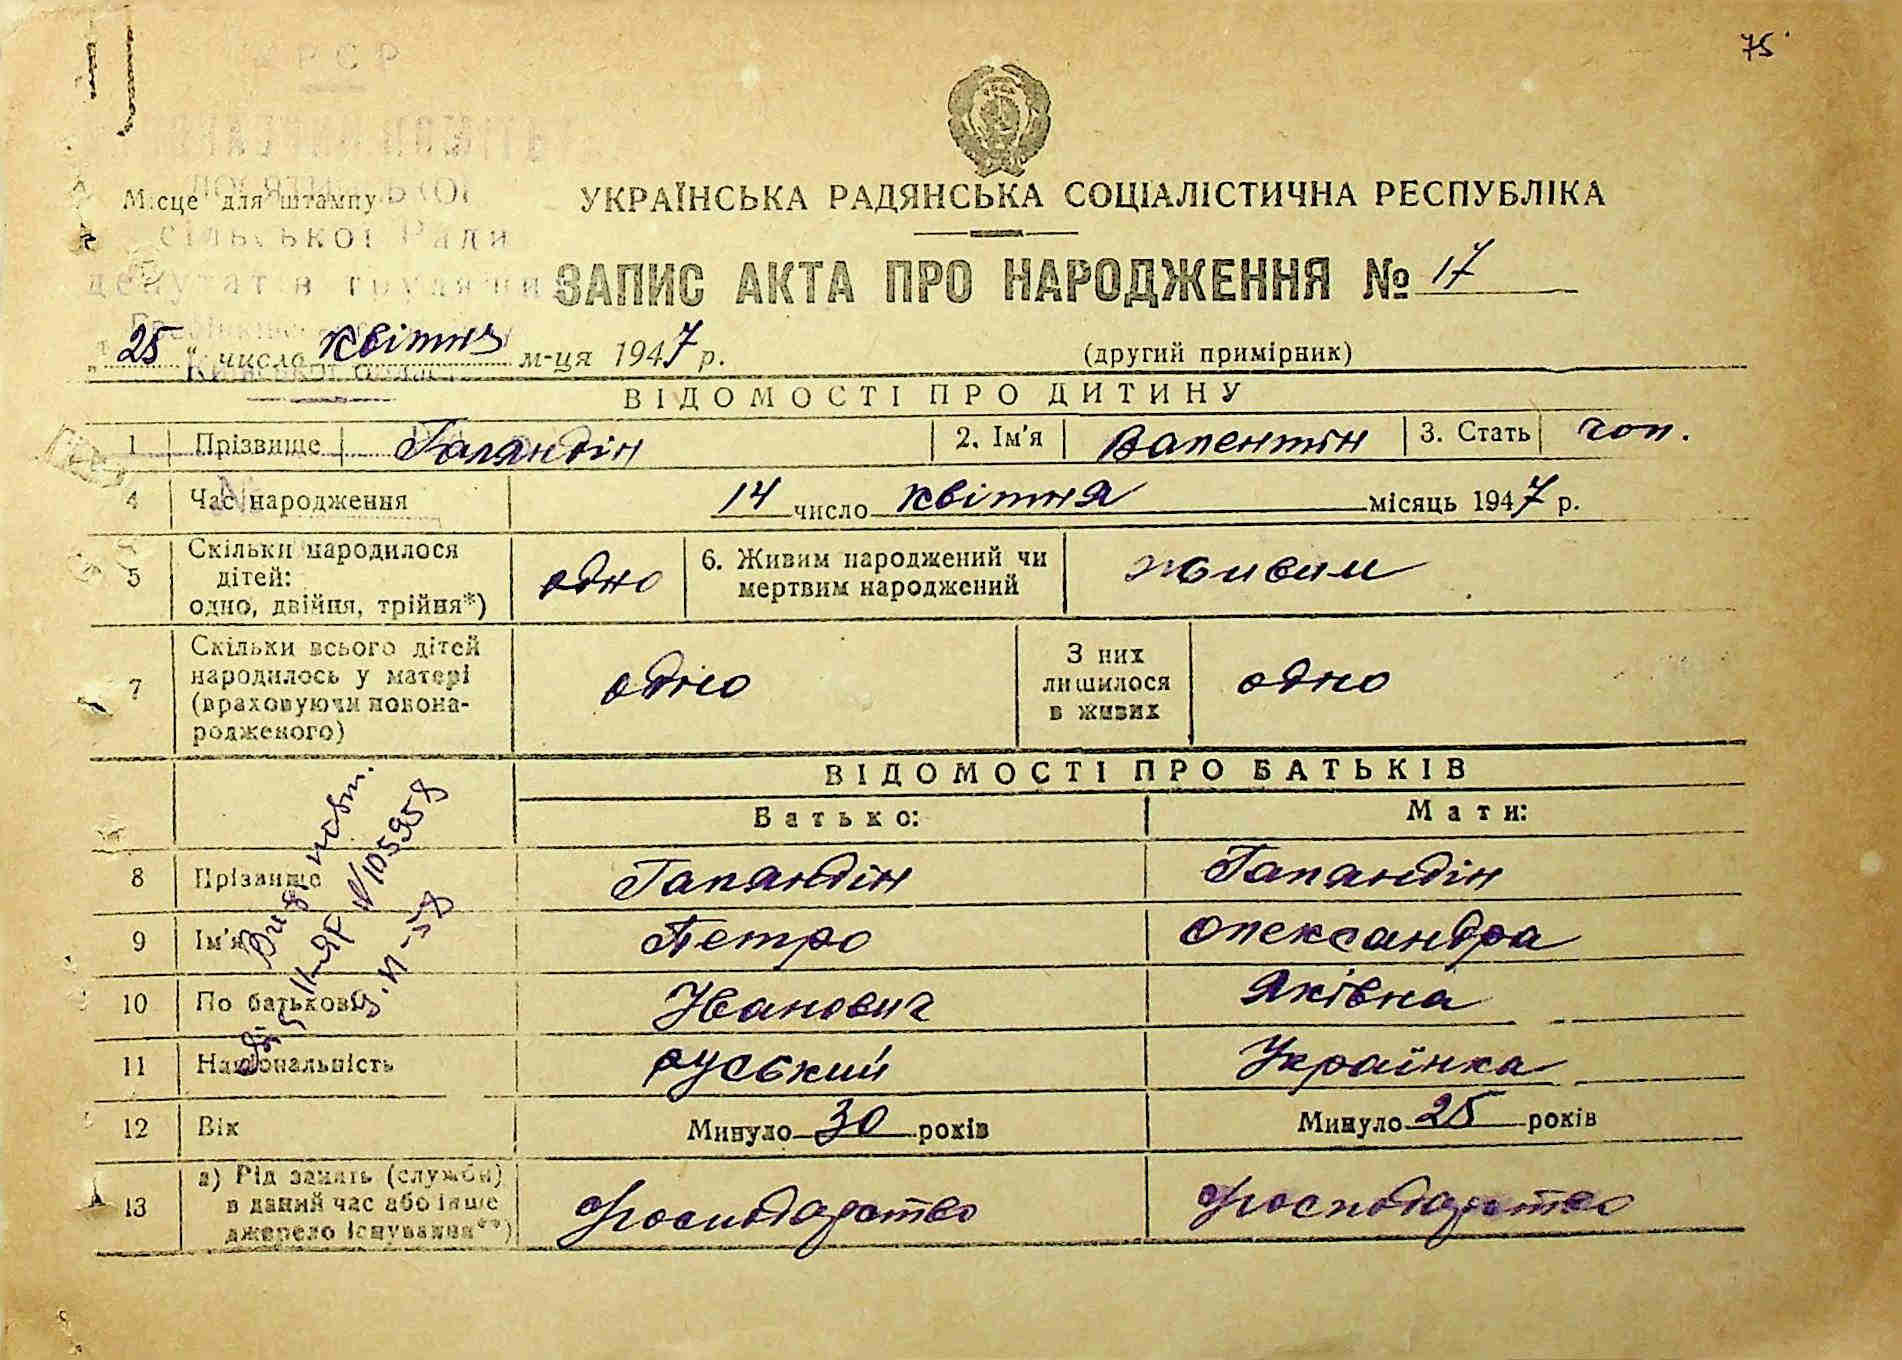 75
УРСР
Місце для штампу
сільської Ради
депутатів трудящих
УКРАЇНСЬКА РАДЯНСЬКА СОЦІАЛІСТИЧНА РЕСПУБЛІКА
ЗАПИС АКТА ПРО НАРОДЖЕННЯ № 17
„25" число квітня м-ця 1947 р.
(другий примірник)
ВІДОМОСТІ ПРО ДИТИНУ
1 Прізвище Галяндін 2. Ім'я Валентін 3. Стать чол.
4 Час народження 14 число квітня місяць 1947 р.
5 Скільки народилося дітей: одно, двійня, трійня*) одно 6. Живим народжений чи мертвим народжений живим
7 Скільки всього дітей народилось у матері (враховуючи новонародженого) одно З них лишилося в живих одно
ВІДОМОСТІ ПРО БАТЬКІВ
Батько: Мати:
8 Прізвище Галяндін Галяндін
9 Ім'я Петро Олександра
10 По батькові Іванович Яківна
11 Національність руський Українка
12 Вік Минуло 30 років Минуло 25 років
13 а) Рід занять (служби) в даний час або інше джерело існування**) господарство господарство